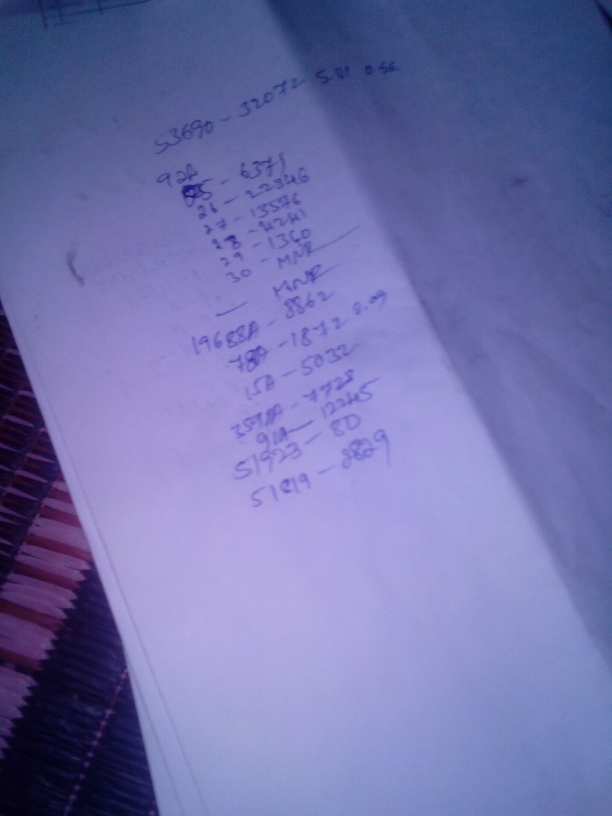 53690 - 32072 5.01 0.56.
92A
25 - 6371
26 - 22946
27 - 13576
28 - 4241
29 - 1360
30 - MNR
— MNR
19688A - 8862
78A - 1872 8.09
15A - 5032
359AA - 7728
91A - 12245
51923 - 80
51819 - 8829